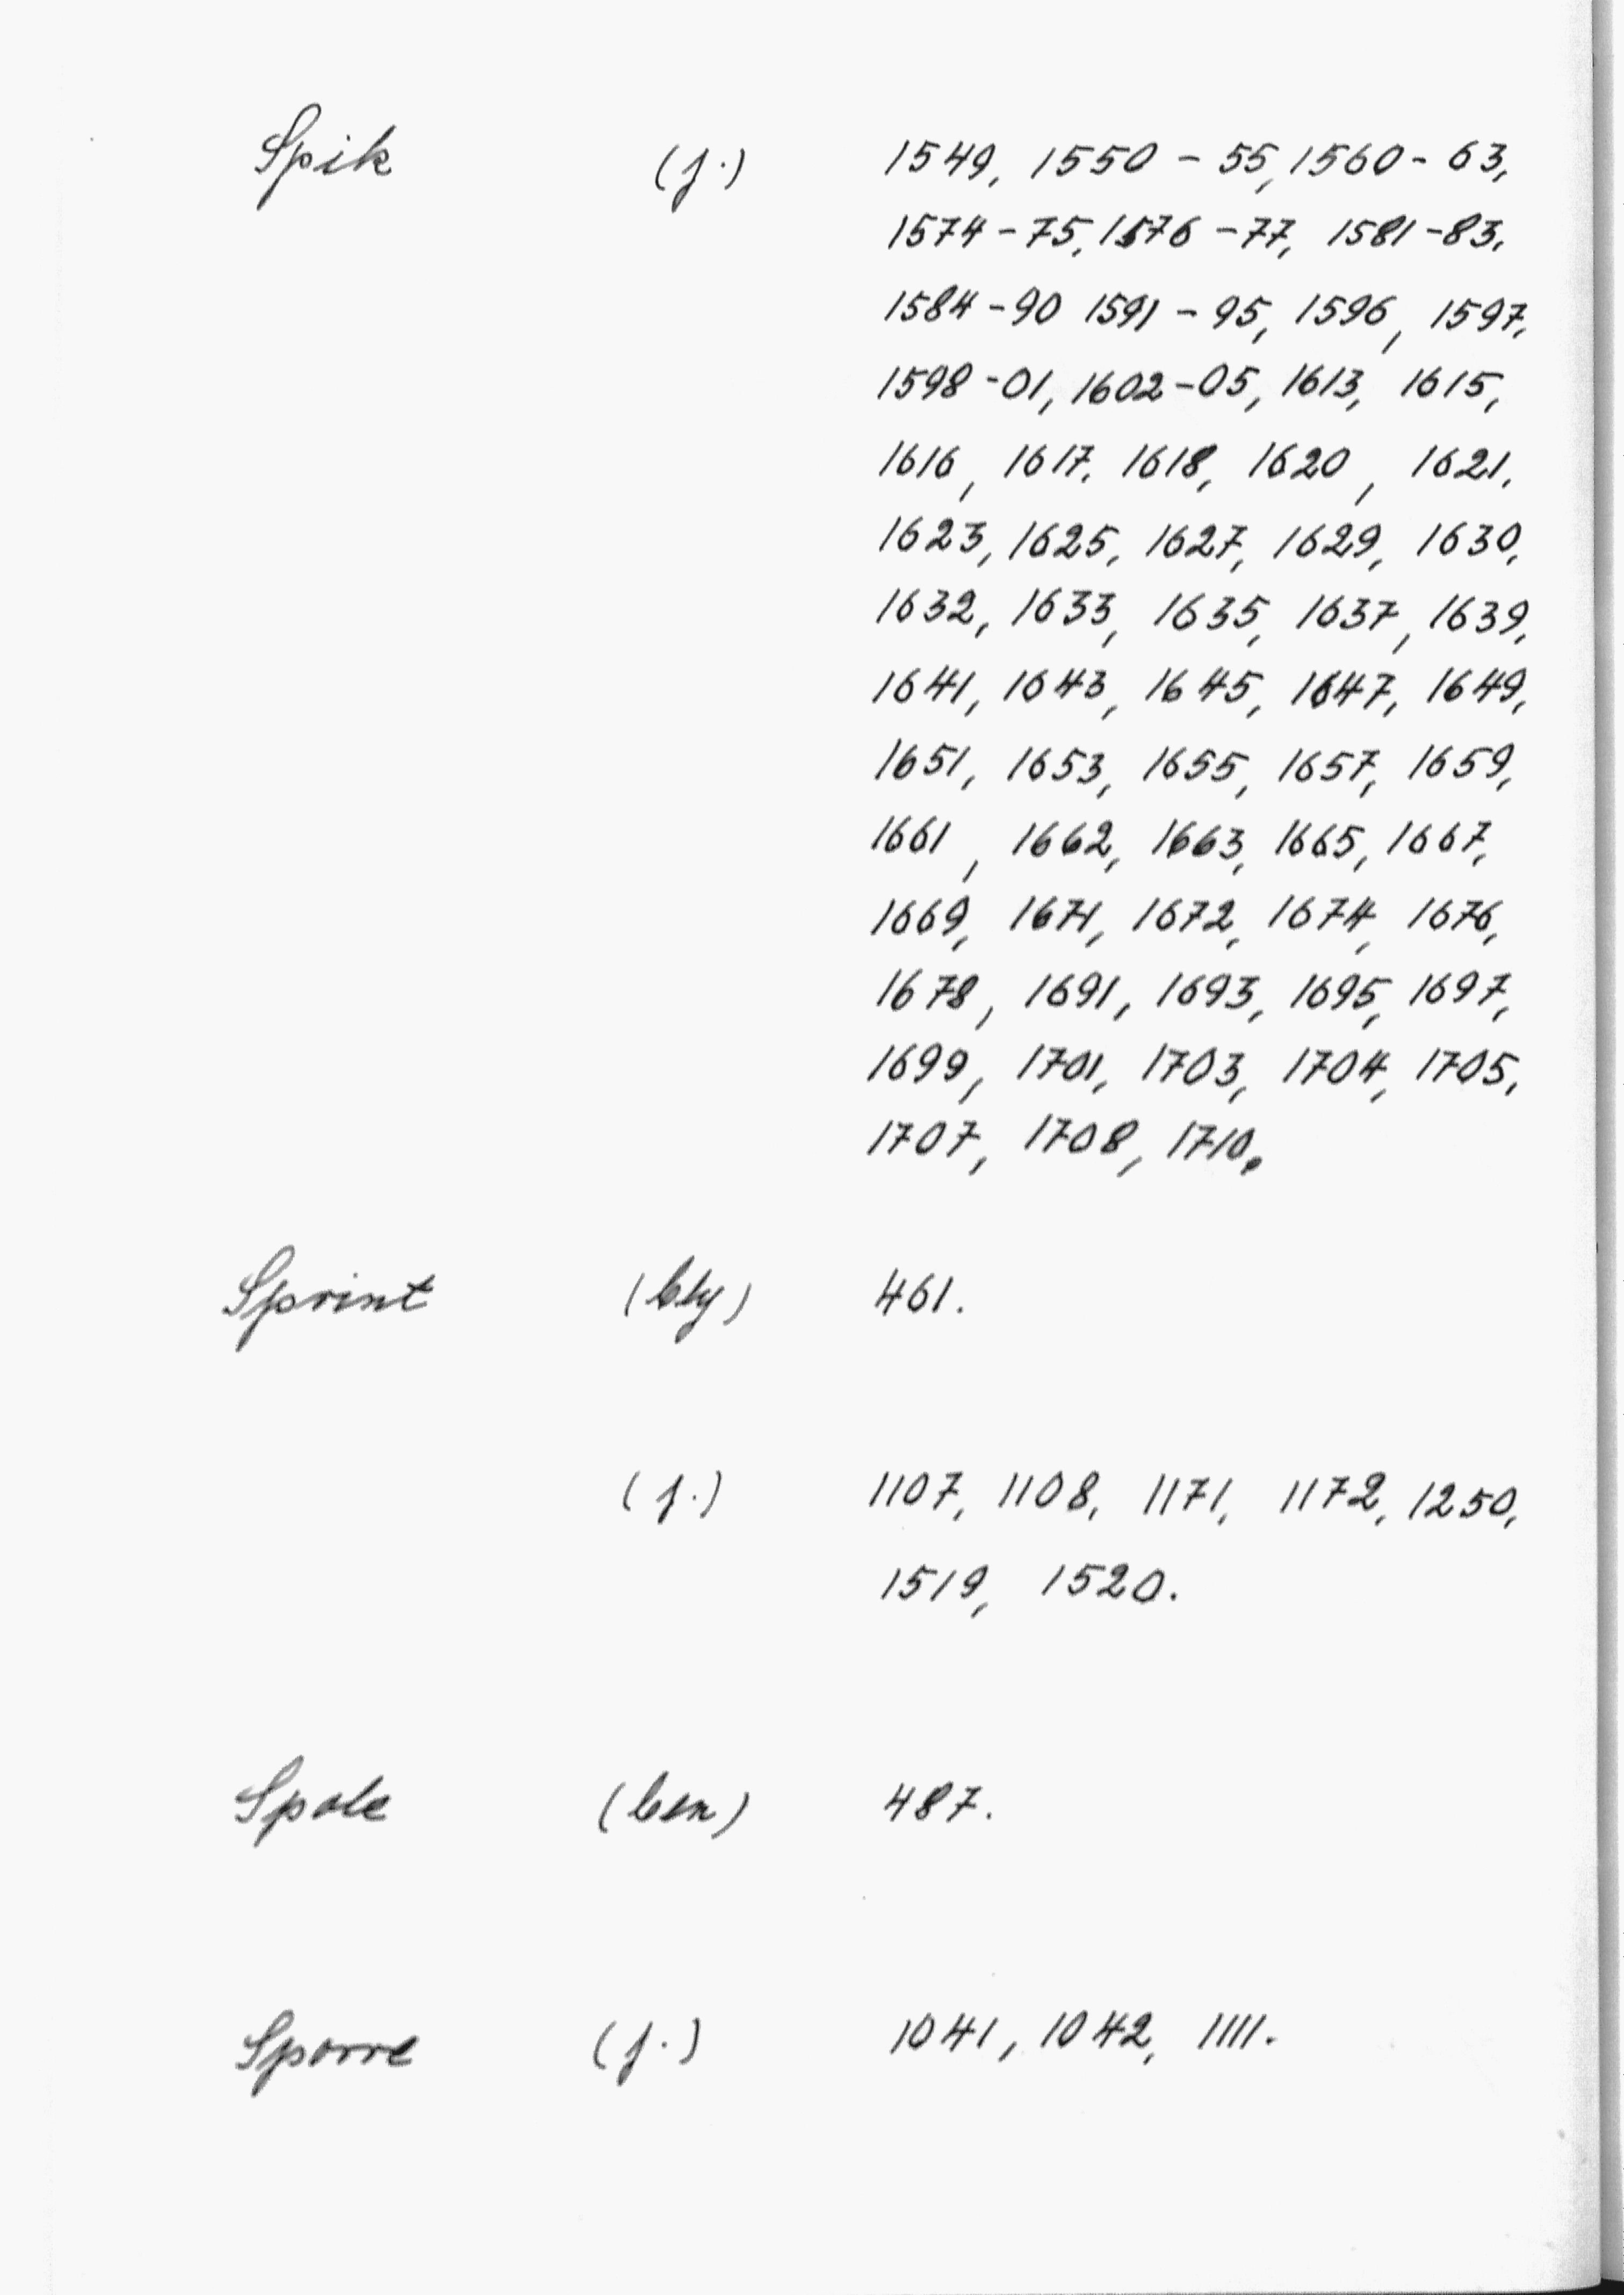 Spik (j.) 1549, 1550 - 55, 1560 - 63,
1574 - 75, 1576 - 77, 1581 - 83,
1584 - 90 1591 - 95, 1596, 1597,
1598 - 01, 1602 - 05, 1613, 1615,
1616, 1617, 1618, 1620, 1621,
1623, 1625, 1627, 1629, 1630,
1632, 1633, 1635, 1637, 1639,
1641, 1643, 1645, 1647, 1649,
1651, 1653, 1655, 1657, 1659,
1661, 1662, 1663, 1665, 1667,
1669, 1671, 1672, 1674, 1676,
1678, 1691, 1693, 1695, 1697,
1699, 1701, 1703, 1704, 1705,
1707, 1708, 1710.
Sprint (bly) 461.
(j.) 1107, 1108, 1171, 1172, 1250,
1519, 1520.
Spole (ben) 487.
Sporre (j.) 1041, 1042, 1111.